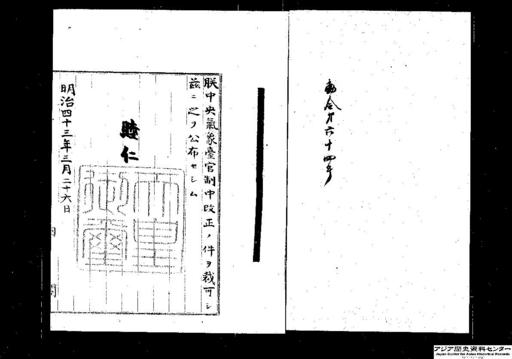 勅令第六十四号
朕中央氣象臺官制中改正ノ件ヲ裁可シ
茲ニ之ヲ公布セシム
睦仁
天皇
御璽
明治四十三年三月二十六日
内閣
アジア歴史資料センター
Japan Center for Asian Historical Records